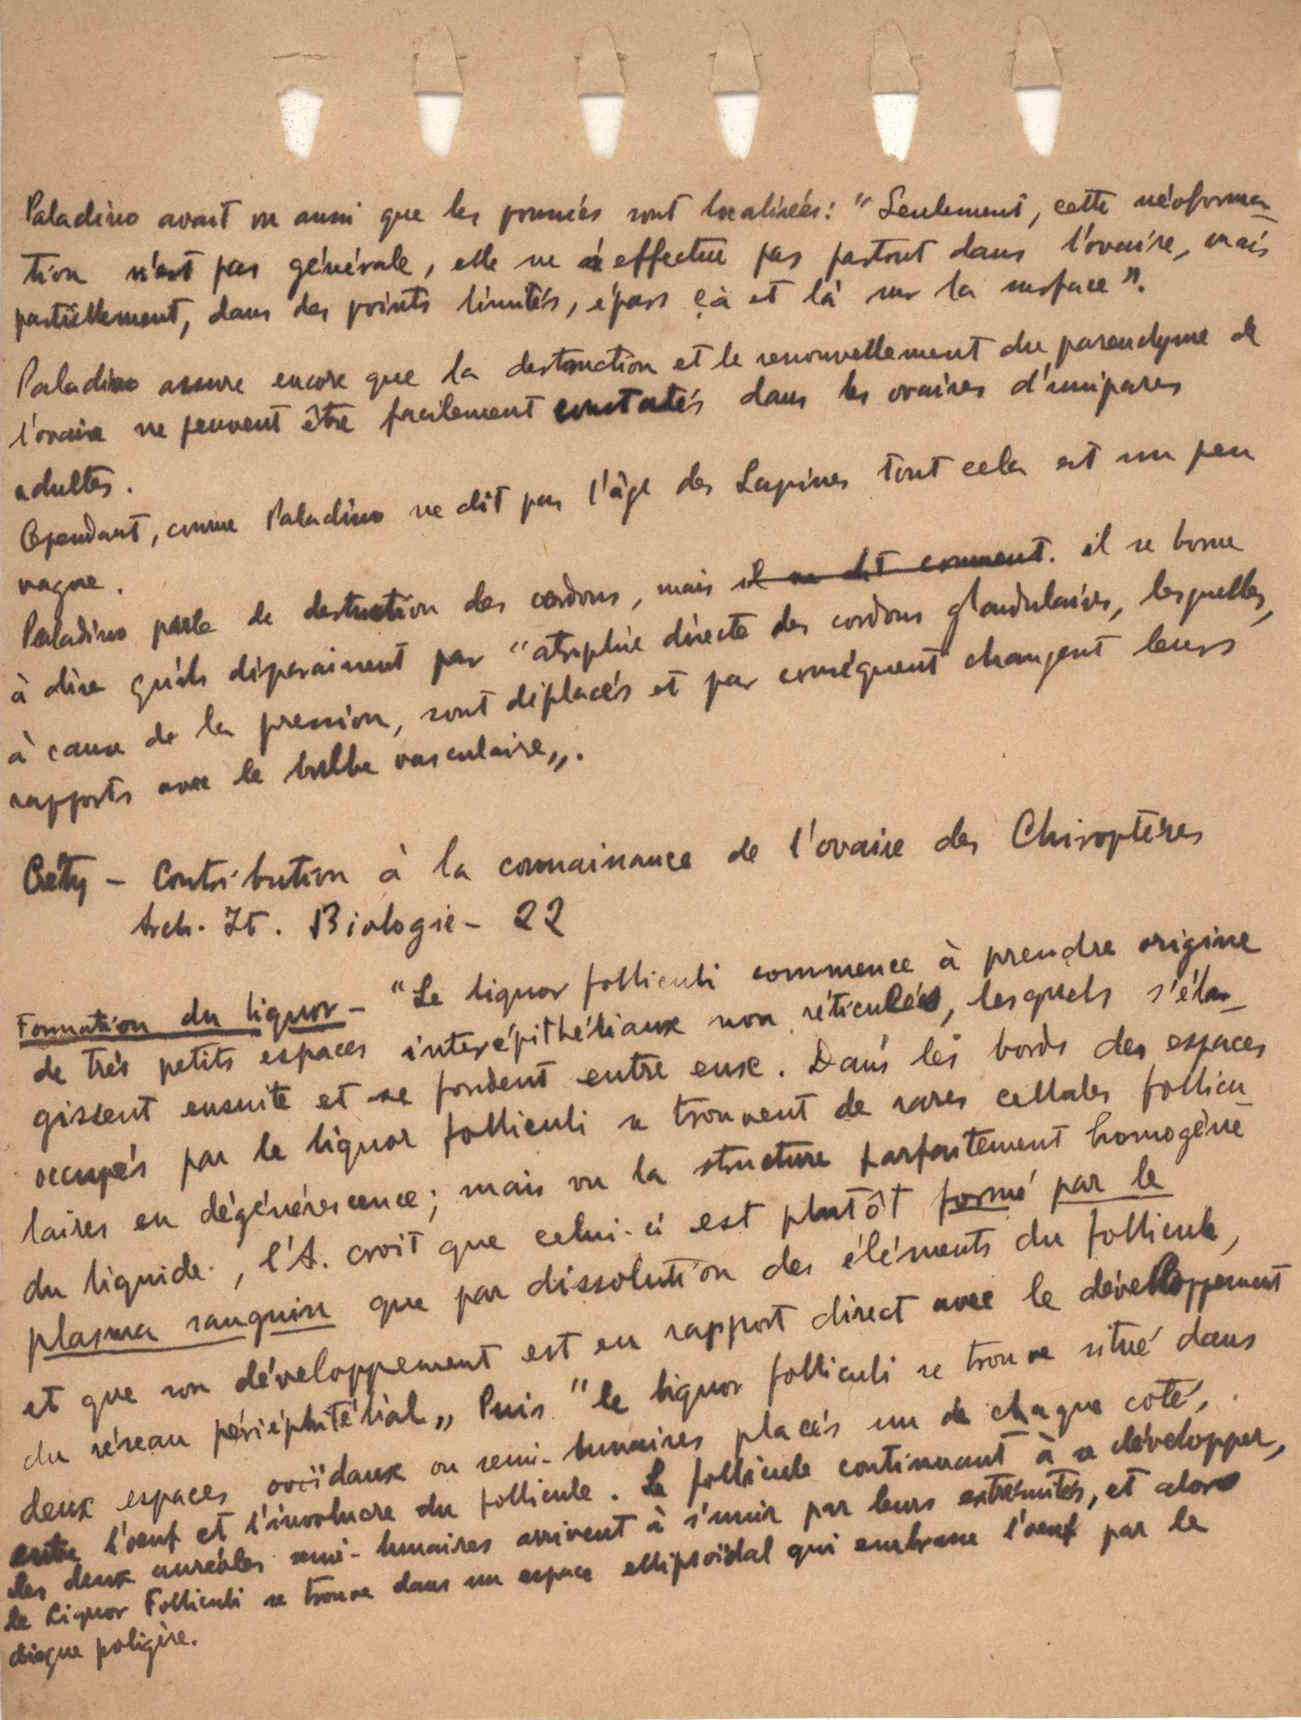 Paladino avait vu aussi que les poussées sont localisées: "Seulement, cette néoforma-
tion n'est pas générale, elle ne s'effectue pas partout dans l'ovaire, mais
partiellement, dans des points limités, épars çà et là sur la surface".
Paladino assure encore que la destruction et le renouvellement du parenchyme de
l'ovaire ne peuvent être facilement constatés dans les ovaires d'unipares
adultes.
Cependant, comme Paladino ne dit pas l'âge des Lapines tout cela est un peu
vague.
Paladino parle de destruction des cordons, mais il ne dit comment. il se borne
à dire qu'ils disparaissent par "atrophie directe des cordons glandulaires, lesquelles,
à cause de la pression, sont déplacés et par conséquent changent leurs
rapports avec le bulbe vasculaire„.
Créty - Contribution à la connaissance de l'ovaire des Chiroptères
Arch. It. Biologie - 22
Formation du liquor - "Le liquor folliculi commence à prendre origine
de très petits espaces interépithéliaux non réticulés, lesquels s'élar-
gissent ensuite et se fondent entre eux. Dans les bords des espaces
occupés par le liquor folliculi se trouvent de rares cellules follicu
laires en dégénérescence; mais vu la structure parfaitement homogène
du liquide, l'A. croit que celui-ci est plutôt formé par le
plasma sanguin que par dissolution des éléments du follicule,
et que son développement est en rapport direct avec le développement
du réseau périéphitélial„ Puis "le liquor folliculi se trouve situé dans
deux espaces ovoïdaux ou semi-lunaires placés un de chaque coté,
entre l'oeuf et l'involucre du follicule. Le follicule continuant à se développer,
les deux auréoles semi-lunaires arrivent à s'unir par leurs extrémités, et alors
le Liquor Folliculi se trouve dans un espace ellipsoïdal qui embrasse l'oeuf par le
disque poligère.